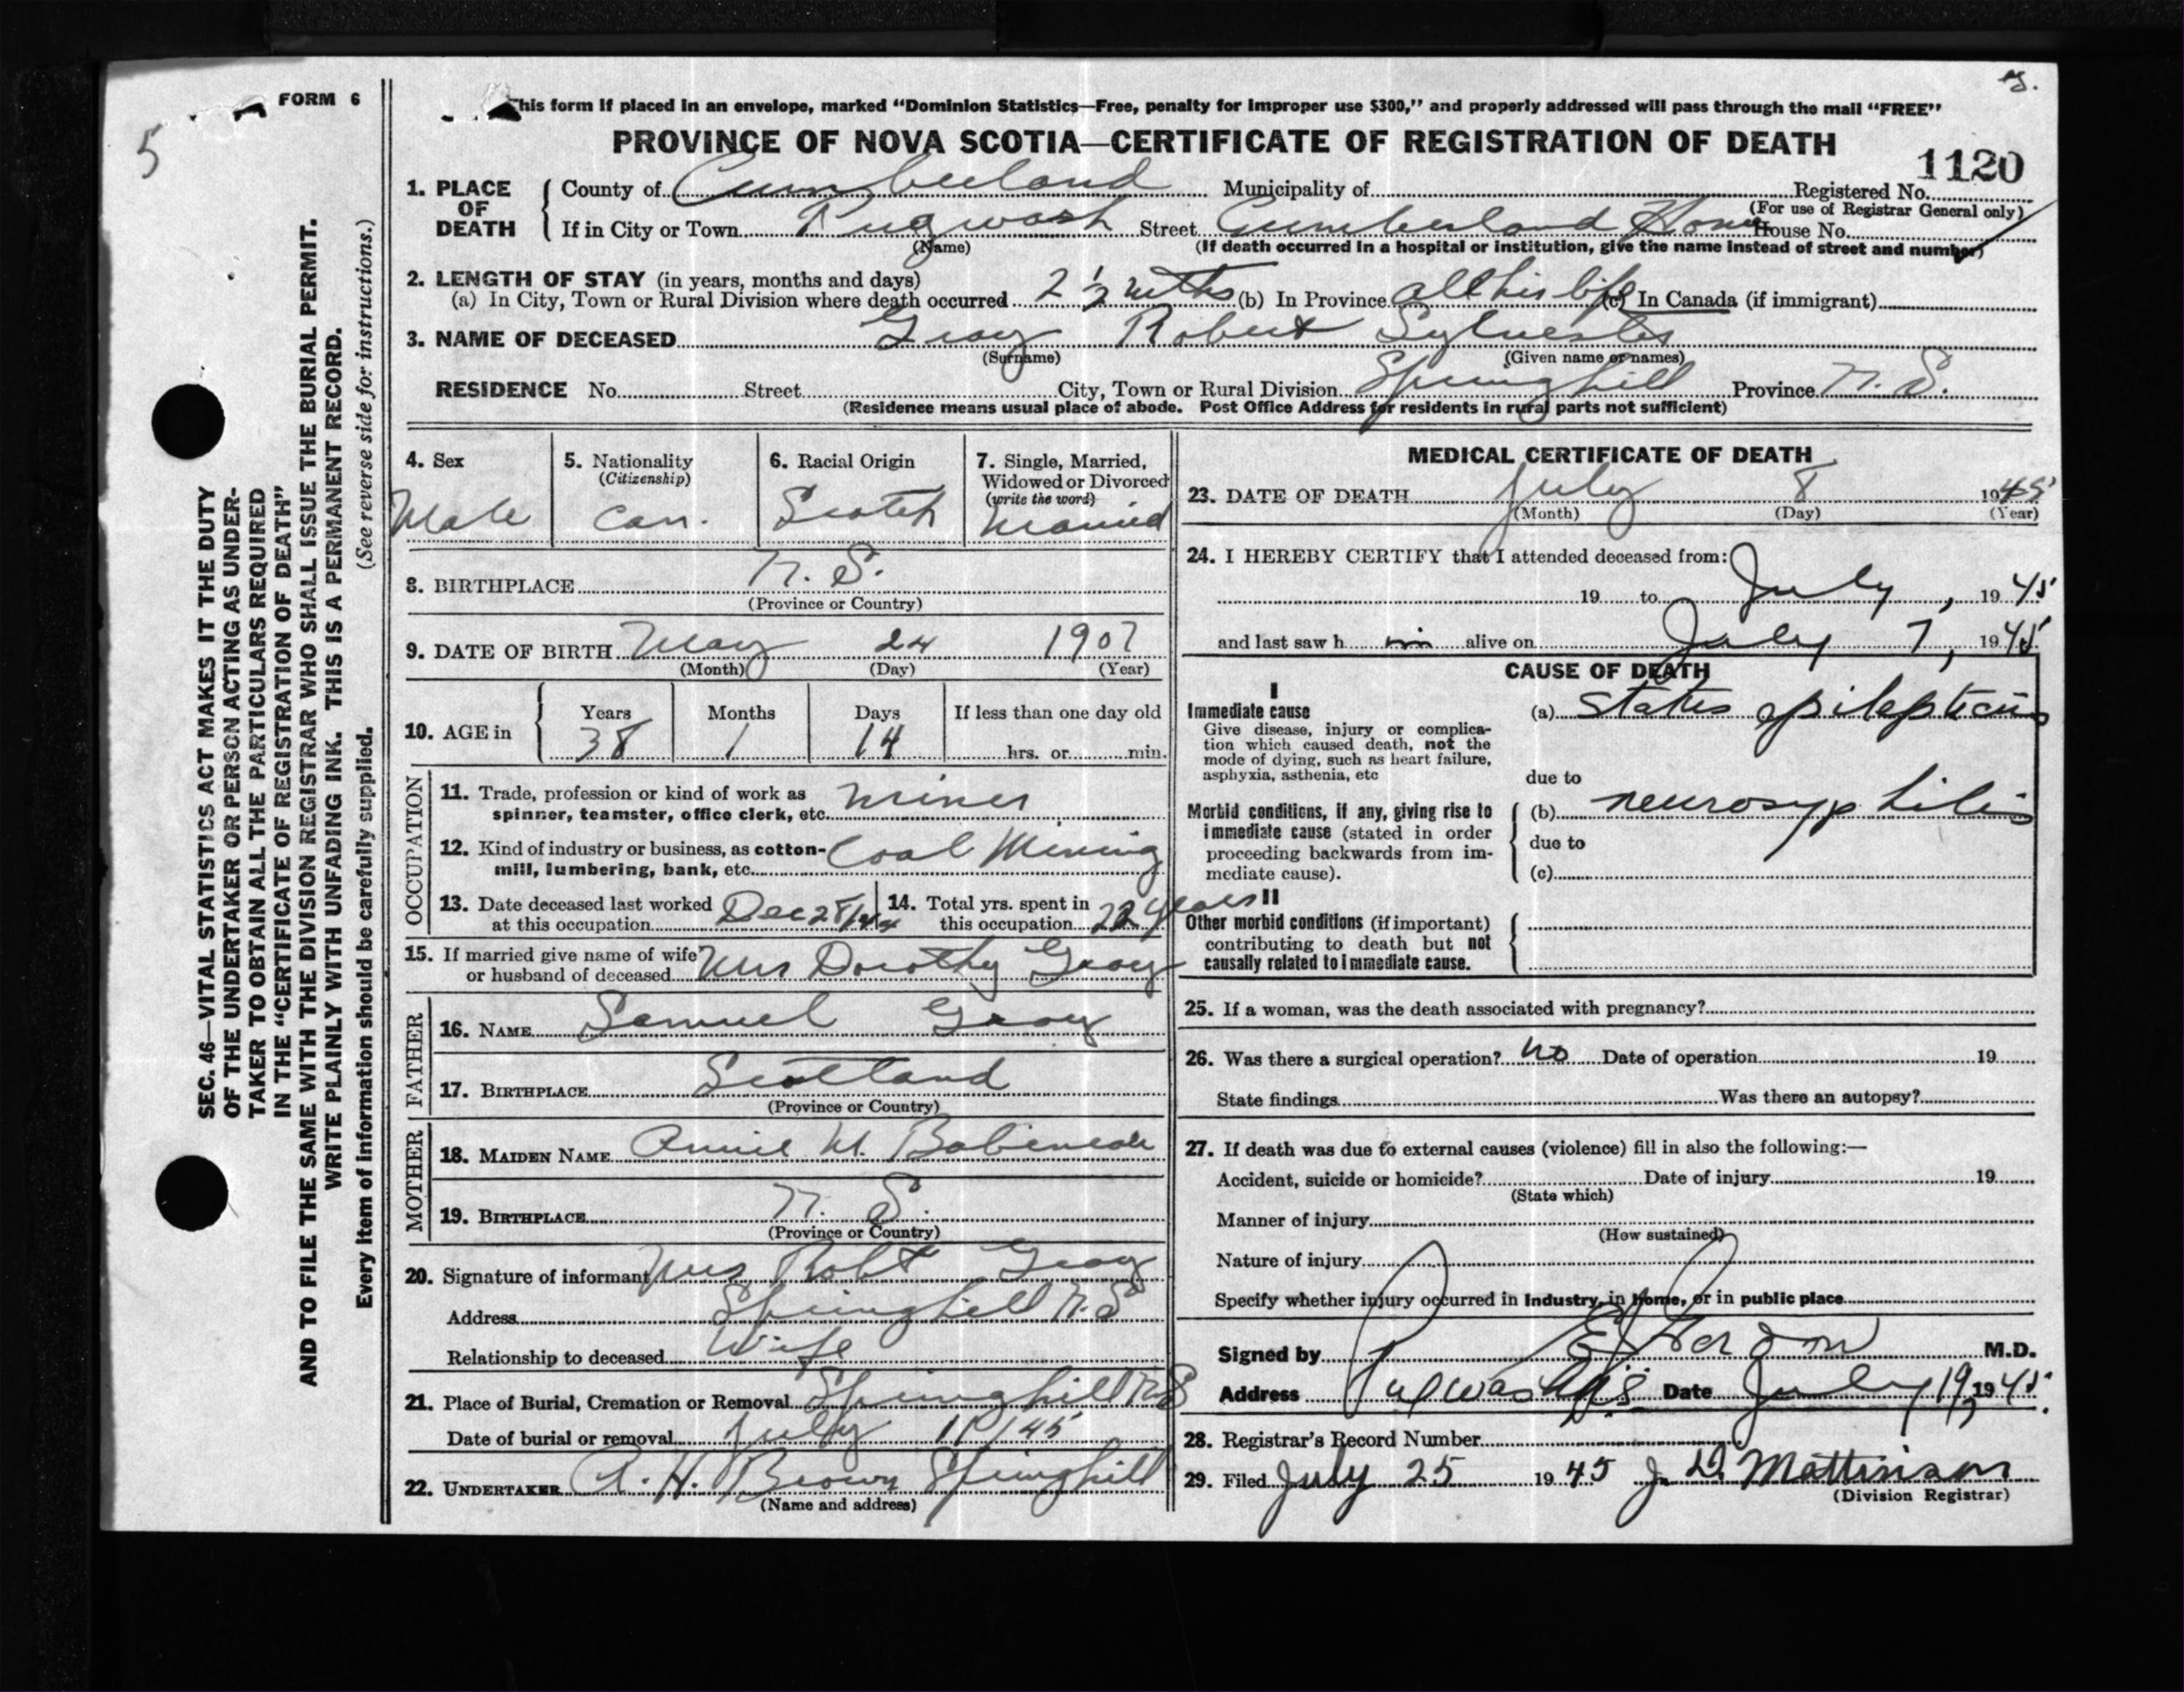 y.
5
FORM 6
This form if placed in an envelope, marked “Dominion Statistics—Free, penalty for improper use $300,” and properly addressed will pass through the mail “FREE”
PROVINCE OF NOVA SCOTIA—CERTIFICATE OF REGISTRATION OF DEATH
1120
1. PLACE OF DEATH County of Cumberland Municipality of Registered No.
(For use of Registrar General only)
If in City or Town Pugwash Street Cumberland Home House No.
(Name) (If death occurred in a hospital or institution, give the name instead of street and number)
2. LENGTH OF STAY (in years, months and days)
(a) In City, Town or Rural Division where death occurred 2 1/2 mths (b) In Province all his life (c) In Canada (if immigrant)
3. NAME OF DECEASED Gray Robert Sylvester
(Surname) (Given name or names)
RESIDENCE No. Street City, Town or Rural Division Springhill Province N. S.
(Residence means usual place of abode. Post Office Address for residents in rural parts not sufficient)
4. Sex 5. Nationality 6. Racial Origin 7. Single, Married,
(Citizenship) Widowed or Divorced
(write the word)
Male Can. Scotch Married
8. BIRTHPLACE N. S.
(Province or Country)
9. DATE OF BIRTH May 24 1907
(Month) (Day) (Year)
10. AGE in Years Months Days If less than one day old
38 1 14 hrs. or min.
OCCUPATION
11. Trade, profession or kind of work as
spinner, teamster, office clerk, etc. miner
12. Kind of industry or business, as cotton-
mill, lumbering, bank, etc. Coal Mining
13. Date deceased last worked
at this occupation Dec 28/44
14. Total yrs. spent in
this occupation 22 years
15. If married give name of wife
or husband of deceased Mrs Dorothy Gray
FATHER
16. NAME Samuel Gray
17. BIRTHPLACE Scotland
(Province or Country)
MOTHER
18. MAIDEN NAME Annie M.
19. BIRTHPLACE N. S.
(Province or Country)
20. Signature of informant Mrs Robt Gray
Address Springhill N. S
Relationship to deceased Wife
21. Place of Burial, Cremation or Removal Springhill N S
Date of burial or removal July 11/45
22. UNDERTAKER A. H. Brown Springhill
(Name and address)
MEDICAL CERTIFICATE OF DEATH
23. DATE OF DEATH July 8 1945
(Month) (Day) (Year)
24. I HEREBY CERTIFY that I attended deceased from:
19 to July, 1945
and last saw h im alive on July 7, 1945
CAUSE OF DEATH
I
Immediate cause
Give disease, injury or complica-
tion which caused death, not the
mode of dying, such as heart failure,
asphyxia, asthenia, etc
(a) status epilepticus
due to
Morbid conditions, if any, giving rise to
immediate cause (stated in order
proceeding backwards from im-
mediate cause).
(b) neurosyphilis
due to
(c)
II
Other morbid conditions (if important)
contributing to death but not
causally related to immediate cause.
25. If a woman, was the death associated with pregnancy?
26. Was there a surgical operation? no Date of operation 19
State findings Was there an autopsy?
27. If death was due to external causes (violence) fill in also the following:—
Accident, suicide or homicide? Date of injury 19
(State which)
Manner of injury
(How sustained)
Nature of injury
Specify whether injury occurred in Industry, in home, or in public place
Signed by M.D.
Address Pugwash N.S. Date July 19, 1945.
28. Registrar's Record Number
29. Filed July 25 1945 J. D. Mattinson
(Division Registrar)
SEC. 46—VITAL STATISTICS ACT MAKES IT THE DUTY
OF THE UNDERTAKER OR PERSON ACTING AS UNDER-
TAKER TO OBTAIN ALL THE PARTICULARS REQUIRED
IN THE “CERTIFICATE OF REGISTRATION OF DEATH”
AND TO FILE THE SAME WITH THE DIVISION REGISTRAR WHO SHALL ISSUE THE BURIAL PERMIT.
WRITE PLAINLY WITH UNFADING INK. THIS IS A PERMANENT RECORD.
Every item of information should be carefully supplied. (See reverse side for instructions.)